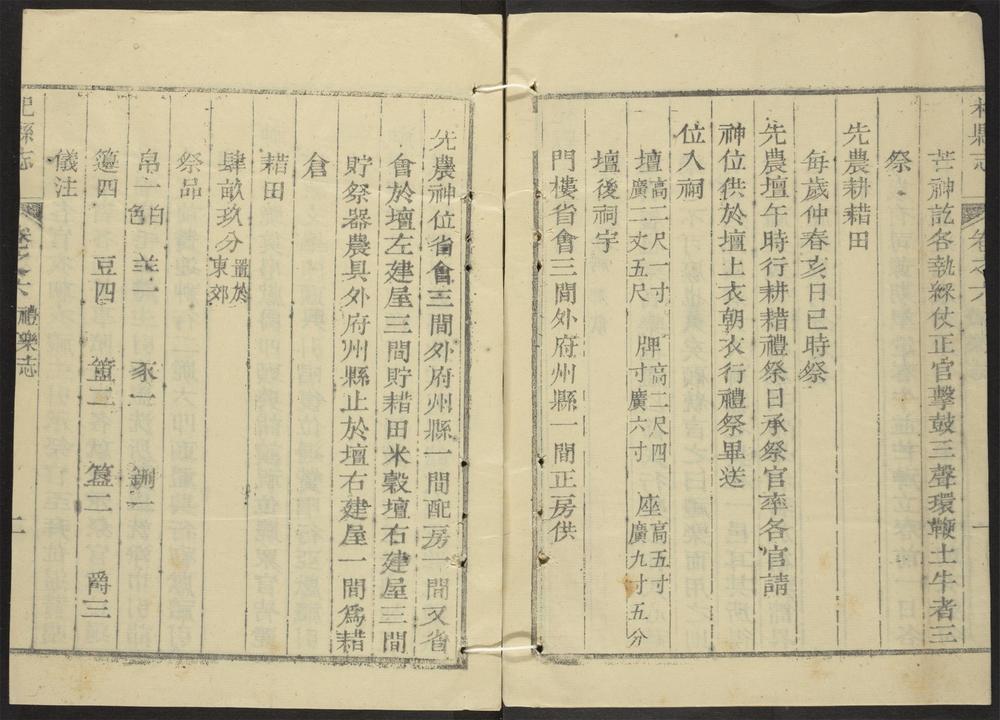 芒神訖各執綵仗正官擊鼓三聲環鞭土牛者三
祭
先農耕耤田
每歲仲春亥日巳時祭
先農壇午時行耕耤禮祭日承祭官率各官請
神位供於壇上衣朝衣行禮祭畢送
位入祠
壇高二尺一寸廣二丈五尺 牌高二尺四寸廣六寸 座高五寸廣九寸五分
壇後祠宇
門樓省會三間外府州縣一間正房供
先農神位省會三間外府州縣一間配房一間又省
會於壇左建屋三間貯耤田米穀壇右建屋三間
貯祭器農具外府州縣止於壇右建屋一間爲耤
倉
耤田
肆畝玖分置於東郊
祭品
帛一白色 羊一 豕一 鉶一
籩四 豆四 簠二 簋二 爵三
儀注
縣志 卷之六 禮樂志 二